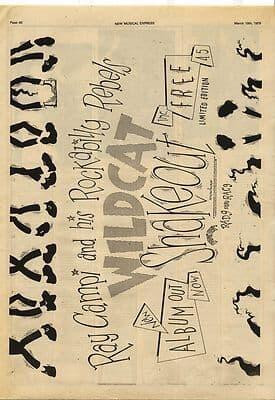 Page 40
NEW MUSICAL EXPRESS
March 10th, 1979
Ray Campi and his Rockabilly Rebels
WILDCAT
Shakeout
New
ALBUM OUT
NOW
inc
FREE
45
LIMITED EDITION